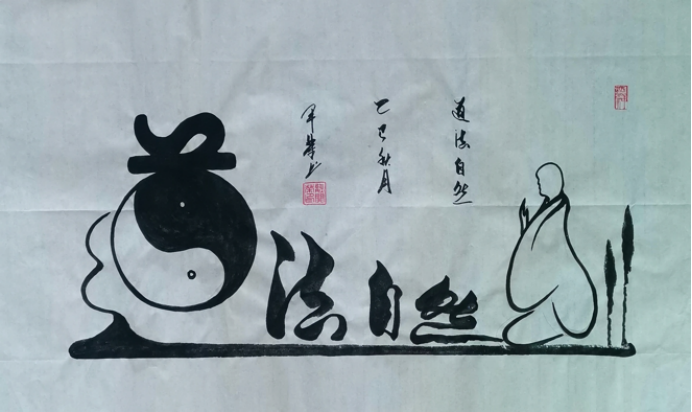 道法自然
乙巳秋月
道法自然